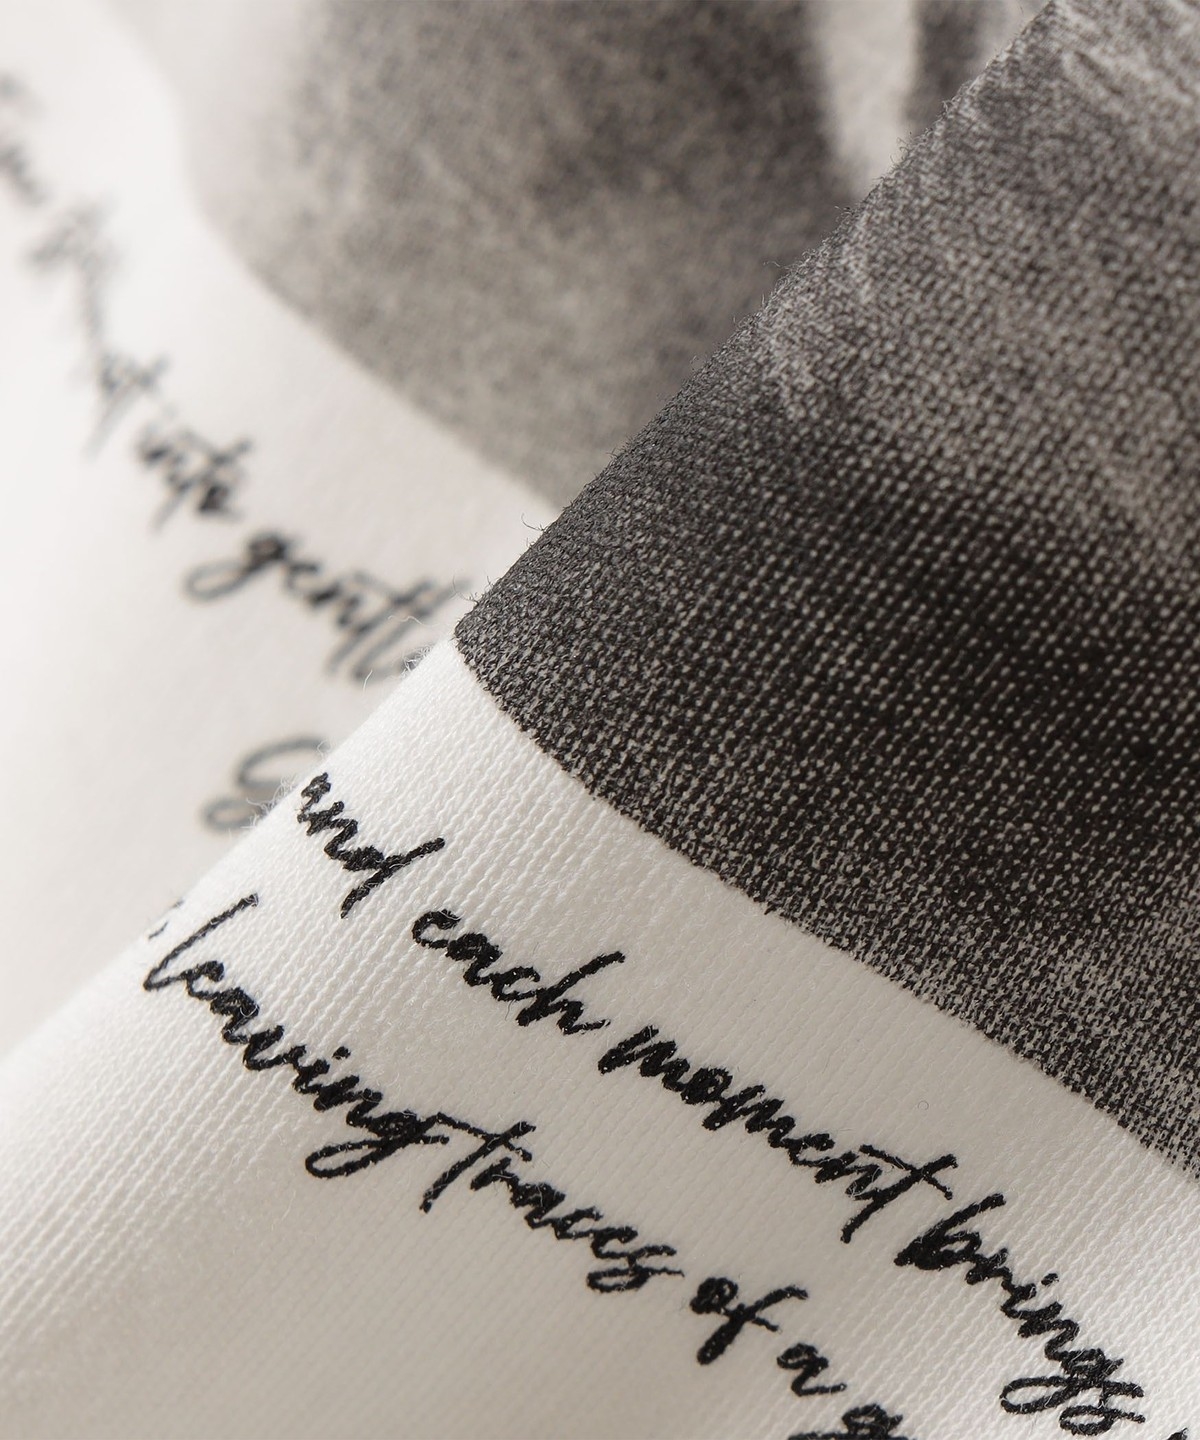 into gentle
and each moment brings
leaving traces of a